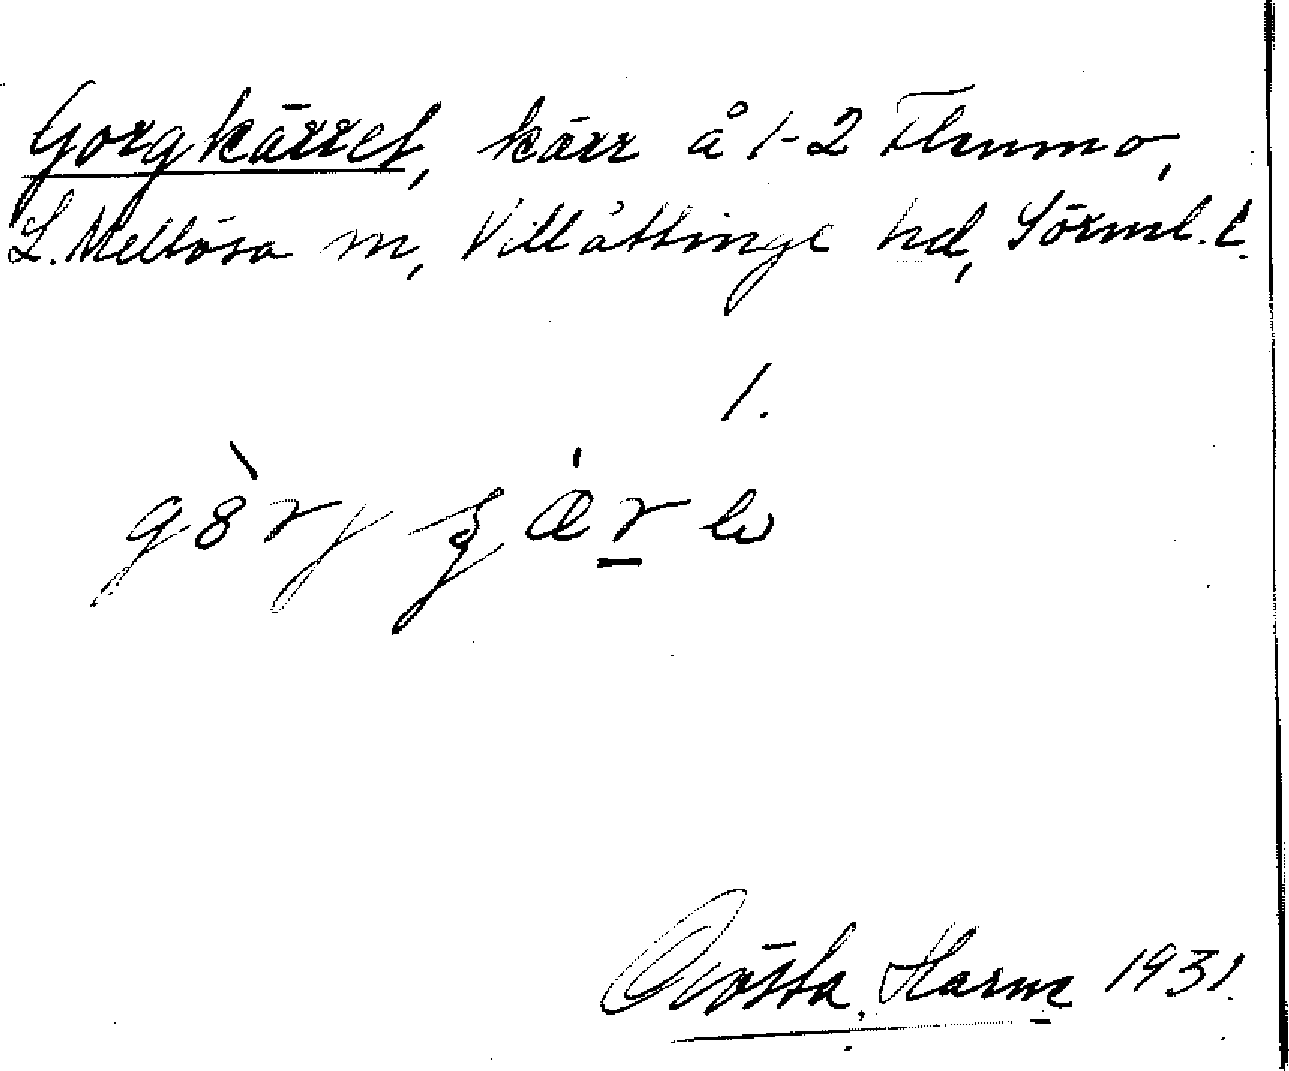 Gorgkärret, kärr å 1-2 Flenmo,
L. Mellösa sn, Villåttinge hd, Sörml. l.
1.
Gösta Harne 1931.